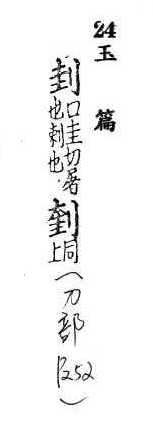 24 玉篇
刲 口圭切屠也刺也 上同（刀部 P252）